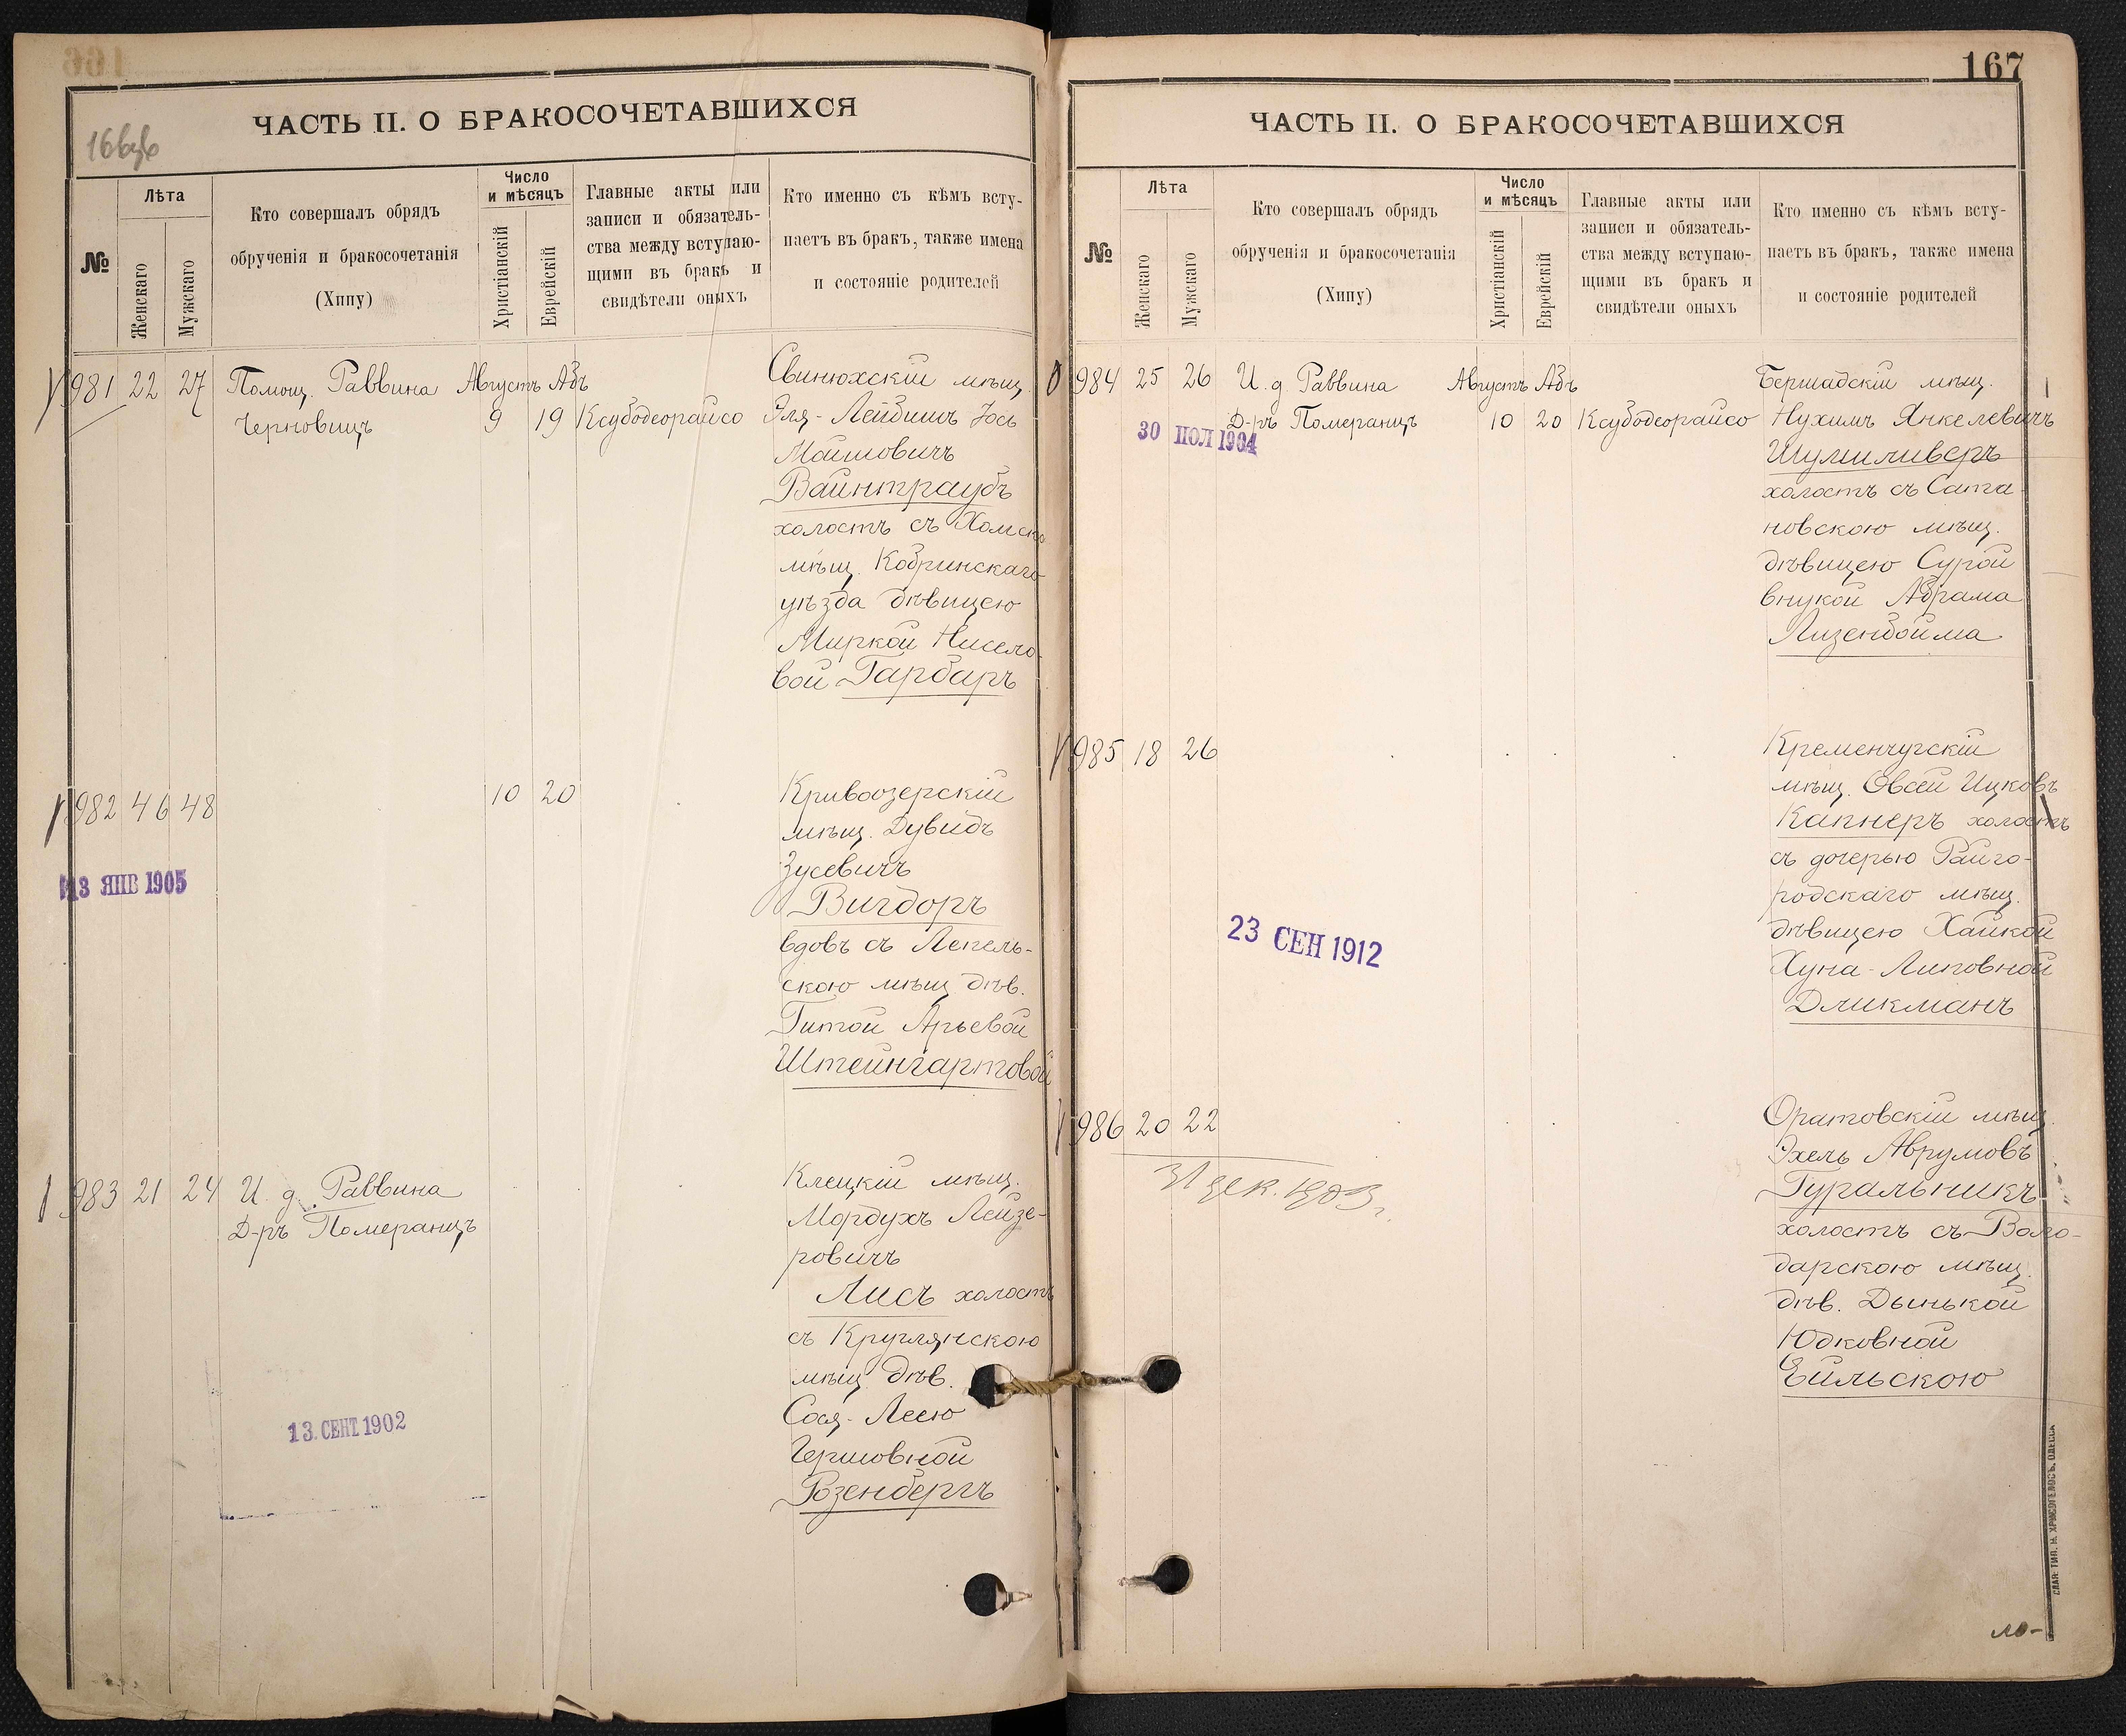 ЧАСТЬ II. О БРАКОСОЧЕТАВШИХСЯ
№
Лѣта
Женскаго
Мужскаго
Кто совершалъ обрядъ
обрученія и бракосочетанія
(Хипу)
Число
и мѣсяцъ
Христіанскій
Еврейскій
Главные акты или
записи и обязатель-
ства между вступаю-
щими въ бракъ и
свидѣтели оныхъ
Кто именно съ кѣмъ всту-
паетъ въ бракъ, также имена
и состояніе родителей
981 22 27 Помощ. Раввина Августъ Абъ
Черновицъ 9 19 Ксубодеорайсо
Свинюхскій мѣщ.
Эля-Лейбишъ Іось
Мошковичъ
Вайнтраубъ
холостъ съ Хомско
мѣщ. Кобринскаго
уѣзда дѣвицею
Миркой Нисело-
вой Гарбаръ
982 46 48 10 20
13 ЯНВ 1905
Кривоозерскій
мѣщ. Дувидъ
Зусевичъ
Вигдоръ
вдовъ съ Лепель-
скою мѣщ. дѣв.
Гитой Арьевой
Штейнгартовой
983 21 24 И. д. Раввина
Д-ръ Померанцъ
13. СЕНТ. 1902
Клецкій мѣщ.
Мордухъ Лейзе-
ровичъ
Лисъ холостъ
съ Круглянскою
мѣщ. дѣв.
Сося-Леею
Гершовной
Розенбергъ
167
ЧАСТЬ II. О БРАКОСОЧЕТАВШИХСЯ
№
Лѣта
Женскаго
Мужскаго
Кто совершалъ обрядъ
обрученія и бракосочетанія
(Хипу)
Число
и мѣсяцъ
Христіанскій
Еврейскій
Главные акты или
записи и обязатель-
ства между вступаю-
щими въ бракъ и
свидѣтели оныхъ
Кто именно съ кѣмъ всту-
паетъ въ бракъ, также имена
и состояніе родителей
984 25 26 И. д. Раввина Августъ Абъ
Д-ръ Померанцъ 10 20 Ксубодеорайсо
30 ІЮЛ 1904
Бершадскій мѣщ.
Нухимъ Янкелевичъ
Шумиливеръ
холостъ съ Сата-
новскою мѣщ.
дѣвицею Сурой
внукой Абрама
Лизенбойма
985 18 26
23 СЕН 1912
Кременчугскій
мѣщ. Овсей Ицковъ
Капнеръ холостъ
съ дочерью Райго-
родскаго мѣщ.
дѣвицею Хайкой
Хуна-Липовной
Дликманъ
986 20 22
31 дек. 1903 г.
Оратовскій мѣщ.
Эхель Аврумовъ
Гуральникъ
холостъ съ Воло-
дарскою мѣщ.
дѣв. Дынькой
Юдковной
Ейльскою